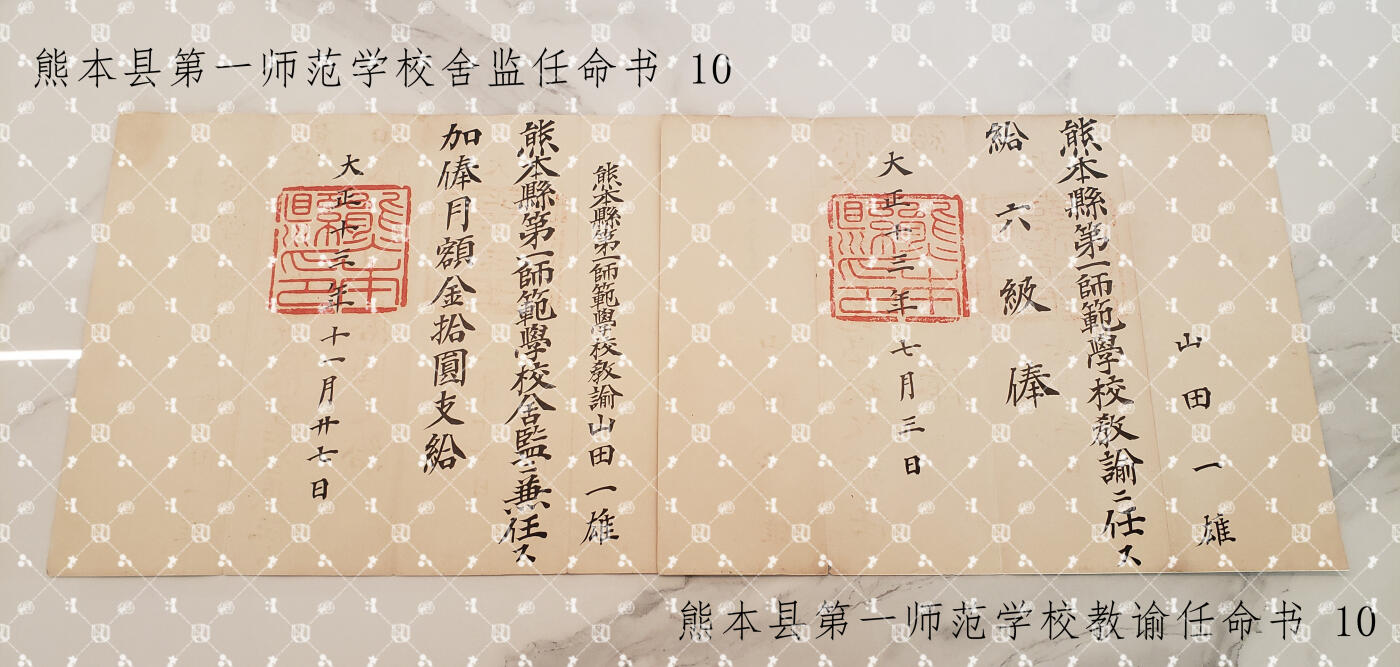 熊本县第一师范学校舍监任命书 10
山田一雄
熊本縣第一師範學校教諭ニ任ス
給六級俸
大正十三年七月三日
熊本縣印
熊本縣第一師範學校教諭山田一雄
熊本縣第一師範學校舍監ニ兼任ス
加俸月額金拾圓支給
大正十三年十一月廿七日
熊本縣印
熊本县第一师范学校教谕任命书 10